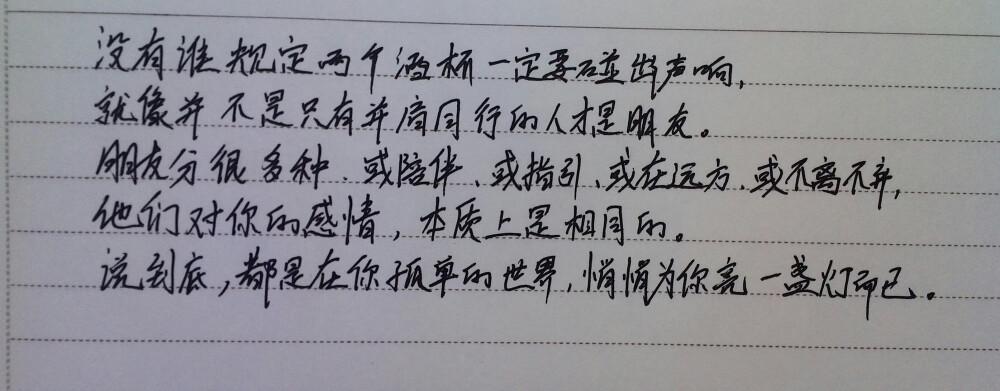 没有谁规定两个酒杯一定要碰出声响，
就像并不是只有并肩同行的人才是朋友。
朋友分很多种、或陪伴、或指引、或在远方、或不离不弃，
他们对你的感情，本质上是相同的。
说到底，都是在你孤单的世界，悄悄为你亮一盏灯而已。